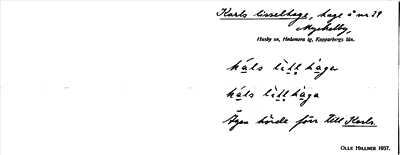 Karls lisselhage, hage å nr 29
Myckelby,
Husby sn, Hedemora tg, Kopparbergs län.
kals lill haga
kals lill haga
Ägan hörde förr till Karls.
OLLE HILLNER 1937.